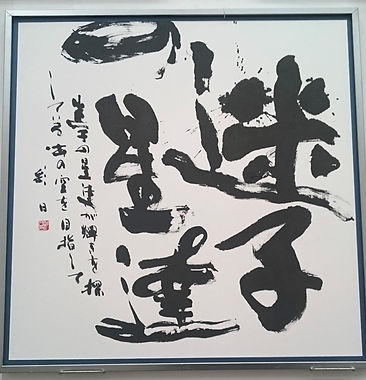 迷子
の星達
迷子の星達が輝きを探
している あの空を目指して